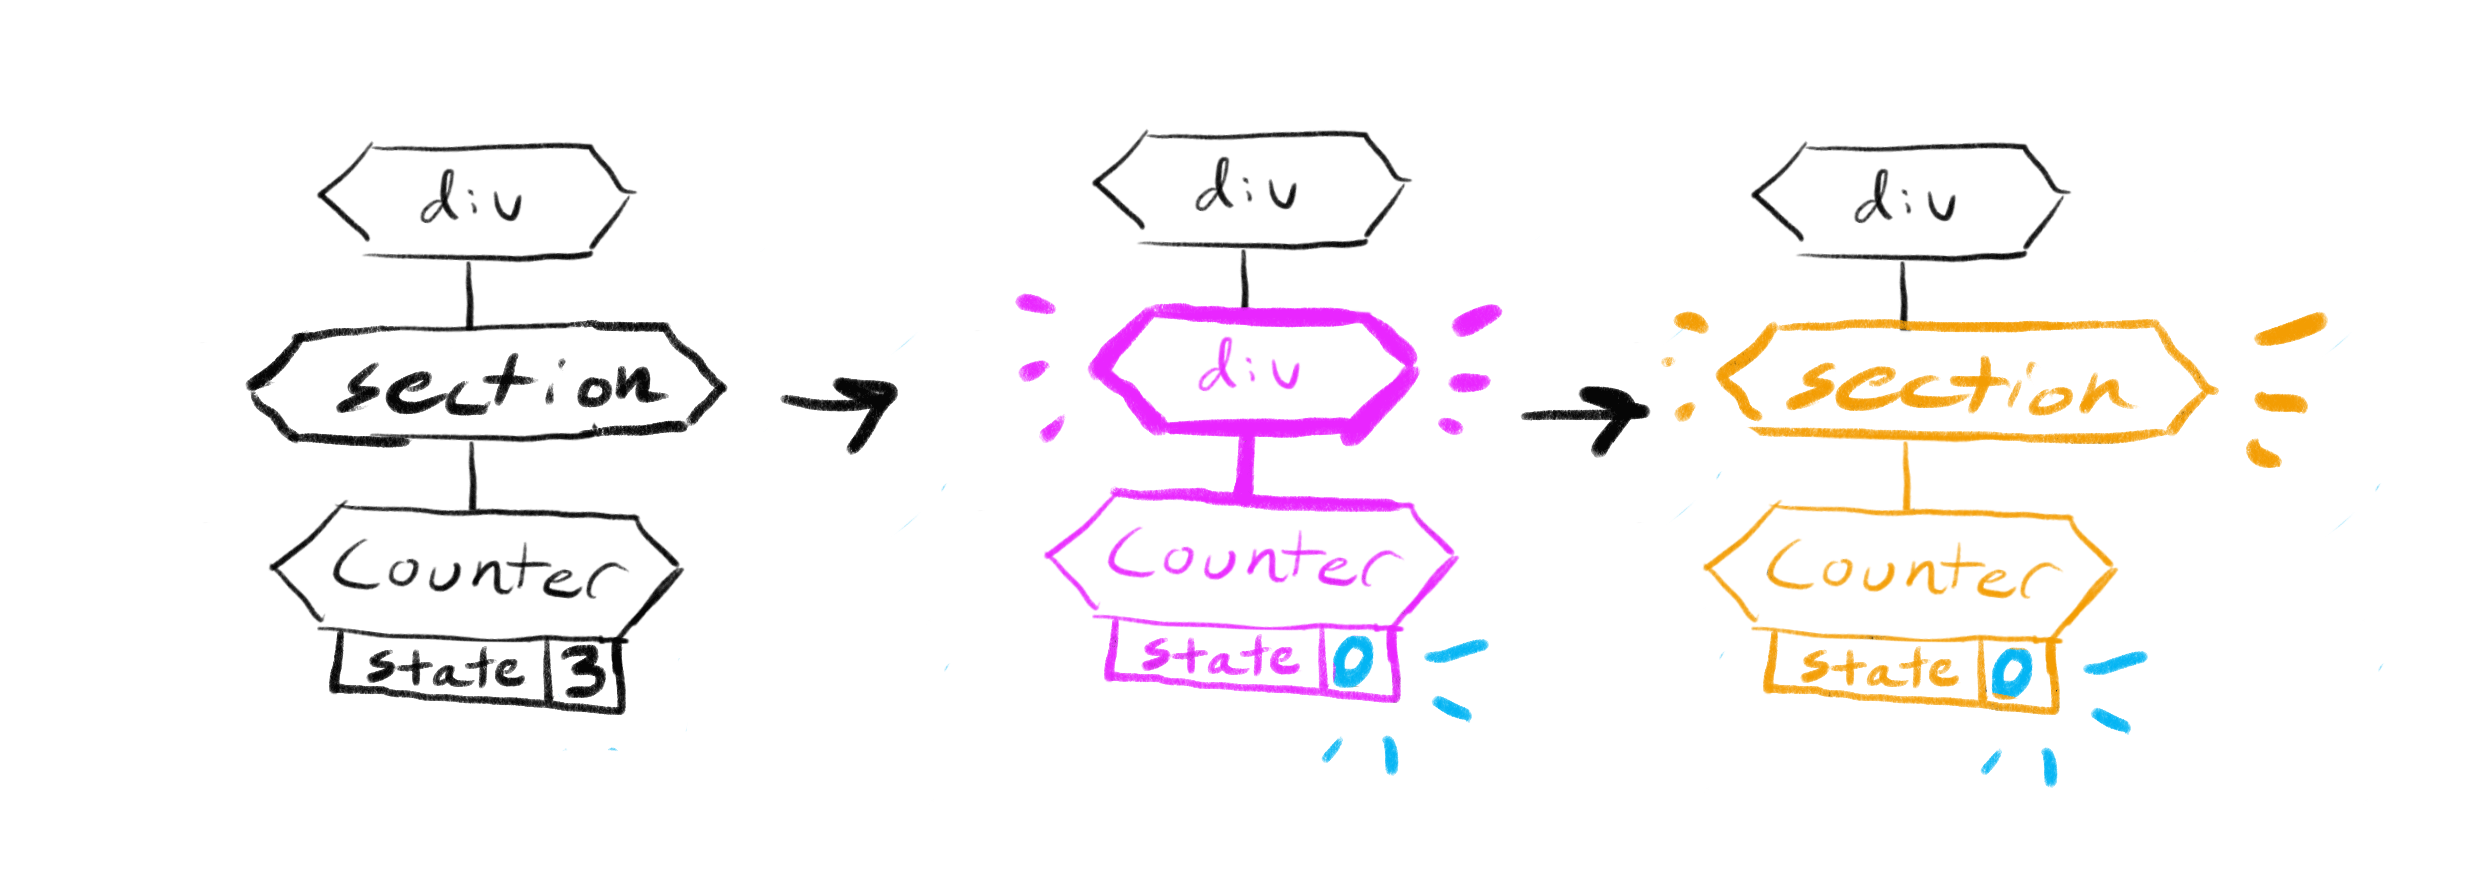 div
section
Counter
state 3
div
div
Counter
state 0
div
section
Counter
state 0